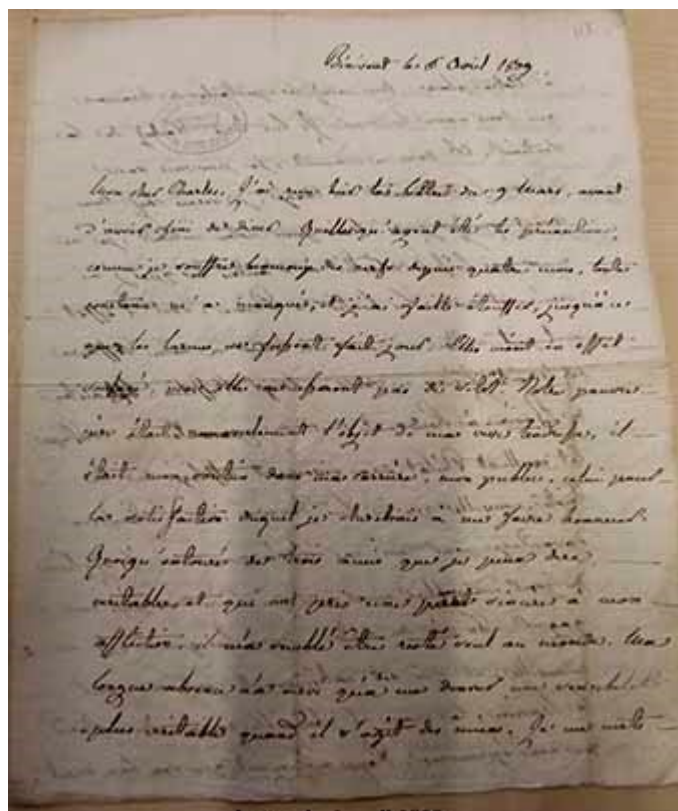 le 6 Avril 1809
Mon cher Charles. J'ai reçu hier ta lettre du 9 Mars, avant
d'avoir fini de diner. Quelles qu'ayent été tes précautions,
comme je souffre beaucoup des nerfs depuis quatre mois, toute
m'a manqué, et j'ai failli étouffer, jusqu'à ce
que les larmes se fussent fait jour. Elles m'ont en effet
mais elles ne cessent pas de sitôt. Notre pauvre
père était l'objet de ma vive tendresse, il
était mon soutien dans ma carrière, mon public, celui pour
la satisfaction duquel je cherchais à me faire honneur.
Quoiqu'entouré de trois amis que je peux dire
véritables et qui ont pris une part sincère à mon
affliction, il m'a semblé être resté seul au monde. Une
longue absence n'a servi qu'à me donner une sensibilité
plus véritable quand il s'agit des miens. Je me mets